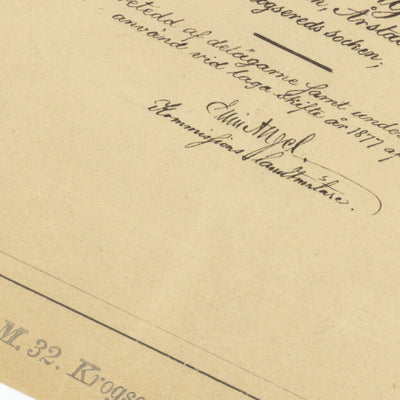 Årstad
Krogsereds socken;
företedd af delägarne samt under
använd vid laga skifte år 1877 af
Emil Angel.
Kommissions Landtmätare.
M. 32. Krogse